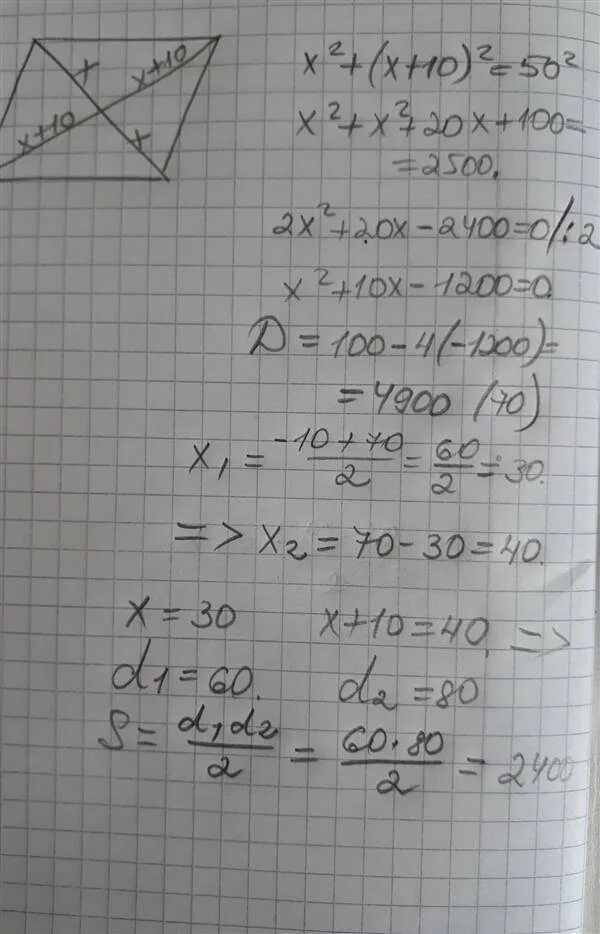 x+10
x
x+10
x
x² + (x+10)² = 50²
x² + x² + 20x + 100 =
= 2500.
2x² + 20x - 2400 = 0 /: 2
x² + 10x - 1200 = 0
D = 100 - 4(-1200) =
= 4900 (70)
x₁ = \frac{-10+70}{2} = \frac{60}{2} = 30.
=> x₂ = 70 - 30 = 40.
x = 30 x+10 = 40, =>
d1 = 60. d₂ = 80
S = \frac{d₁d₂}{2} = \frac{60·80}{2} = 2400